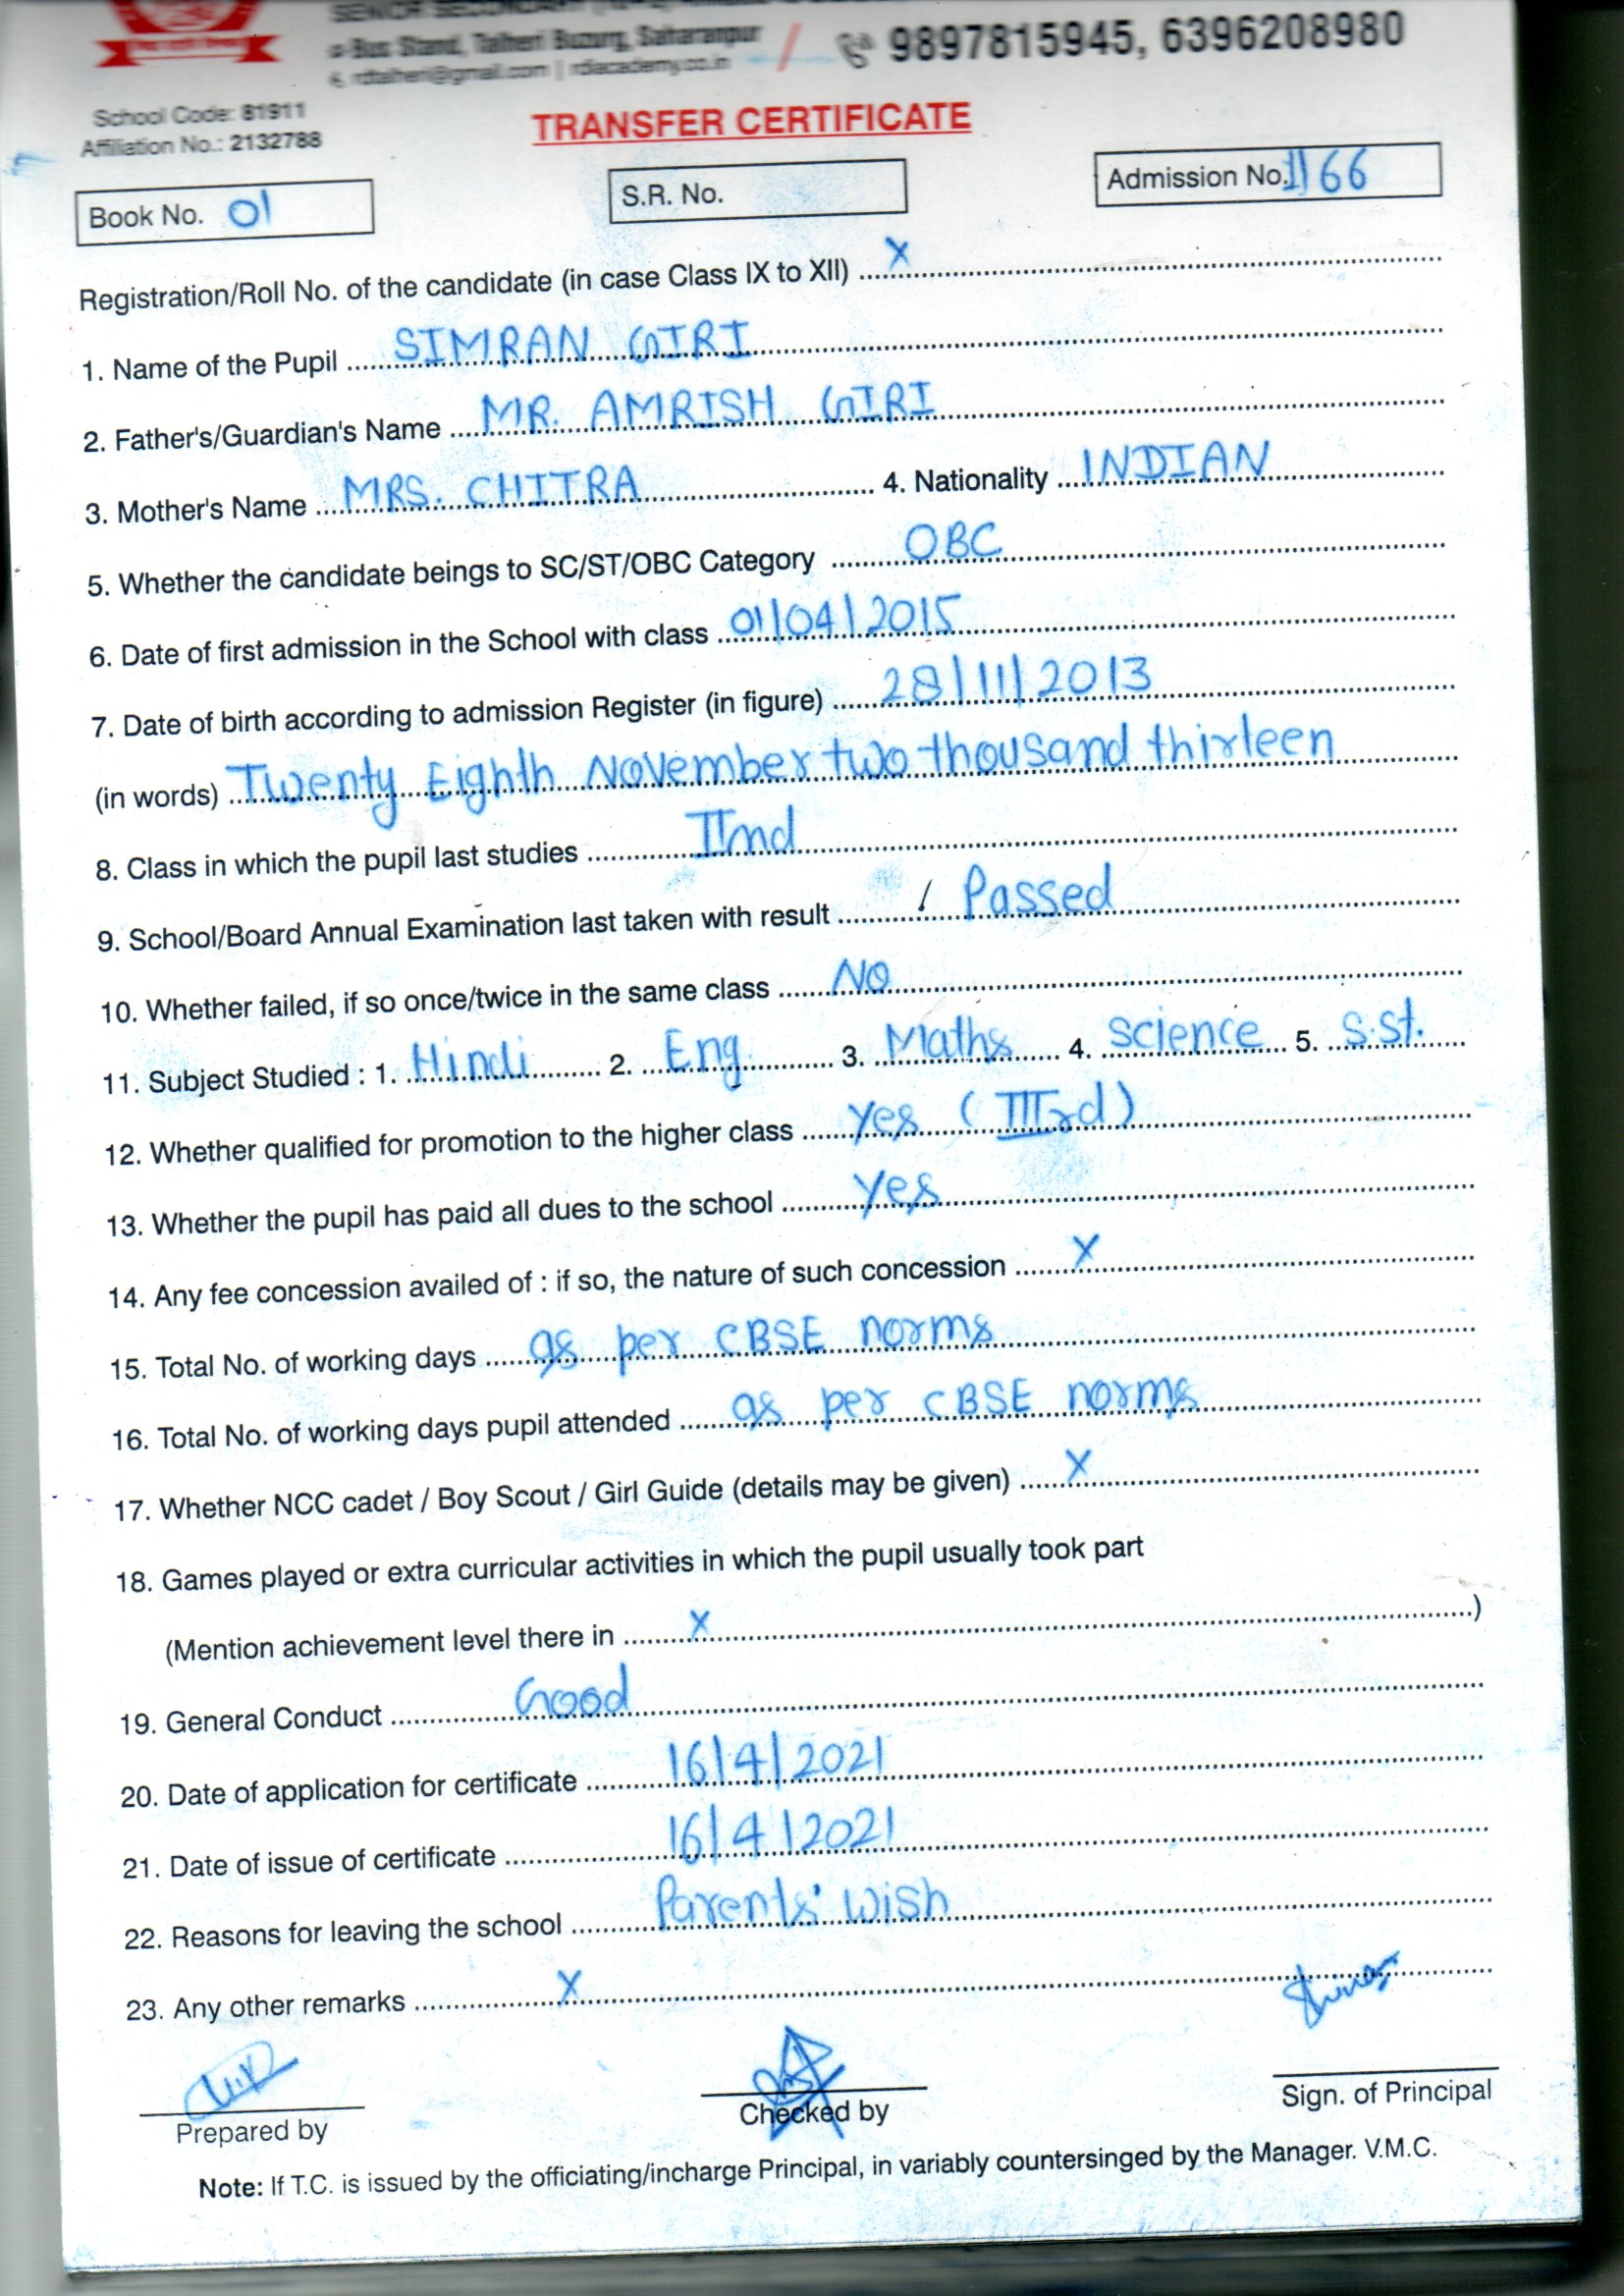 SENIOR SECONDARY
Bus Stand, Talheri Buzurg, Saharanpur
9897815945, 6396208980
rdtalheri@gmail.com | rdiacademy.co.in
School Code: 81911
Affiliation No.: 2132788
TRANSFER CERTIFICATE
Book No. 01 S.R. No. Admission No. 1166
Registration/Roll No. of the candidate (in case Class IX to XII) X
1. Name of the Pupil SIMRAN GIRI
2. Father's/Guardian's Name MR. AMRISH GIRI
3. Mother's Name MRS. CHITRA 4. Nationality INDIAN
5. Whether the candidate beings to SC/ST/OBC Category OBC
6. Date of first admission in the School with class 01/04/2015
7. Date of birth according to admission Register (in figure) 28/11/2013
(in words) Twenty Eighth November two thousand thirteen
8. Class in which the pupil last studies IInd
9. School/Board Annual Examination last taken with result Passed
10. Whether failed, if so once/twice in the same class NO
11. Subject Studied : 1. Hindi 2. Eng. 3. Maths 4. Science 5. S.St.
12. Whether qualified for promotion to the higher class Yes (IIIrd)
13. Whether the pupil has paid all dues to the school Yes
14. Any fee concession availed of : if so, the nature of such concession X
15. Total No. of working days as per CBSE norms
16. Total No. of working days pupil attended as per CBSE norms
17. Whether NCC cadet / Boy Scout / Girl Guide (details may be given) X
18. Games played or extra curricular activities in which the pupil usually took part
(Mention achievement level there in X )
19. General Conduct Good
20. Date of application for certificate 16/4/2021
21. Date of issue of certificate 16/4/2021
22. Reasons for leaving the school Parents' wish
23. Any other remarks X
Prepared by Checked by Sign. of Principal
Note: If T.C. is issued by the officiating/incharge Principal, in variably countersinged by the Manager. V.M.C.